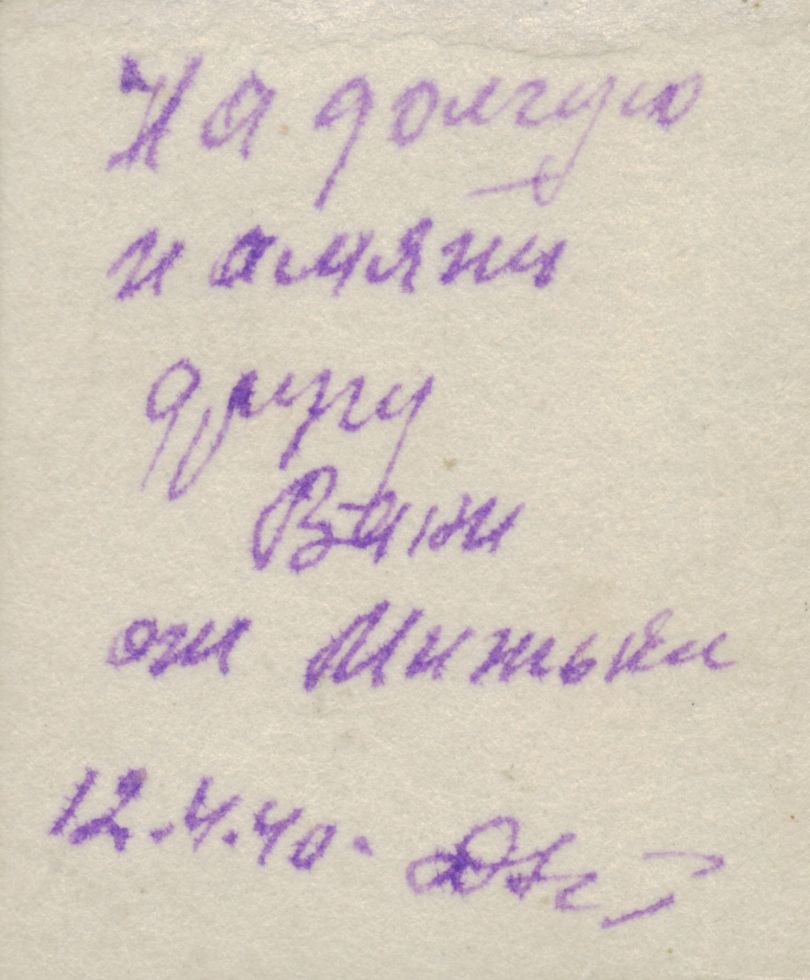 На долгую
память
другу
Вани
от Митьки
12.4.40.